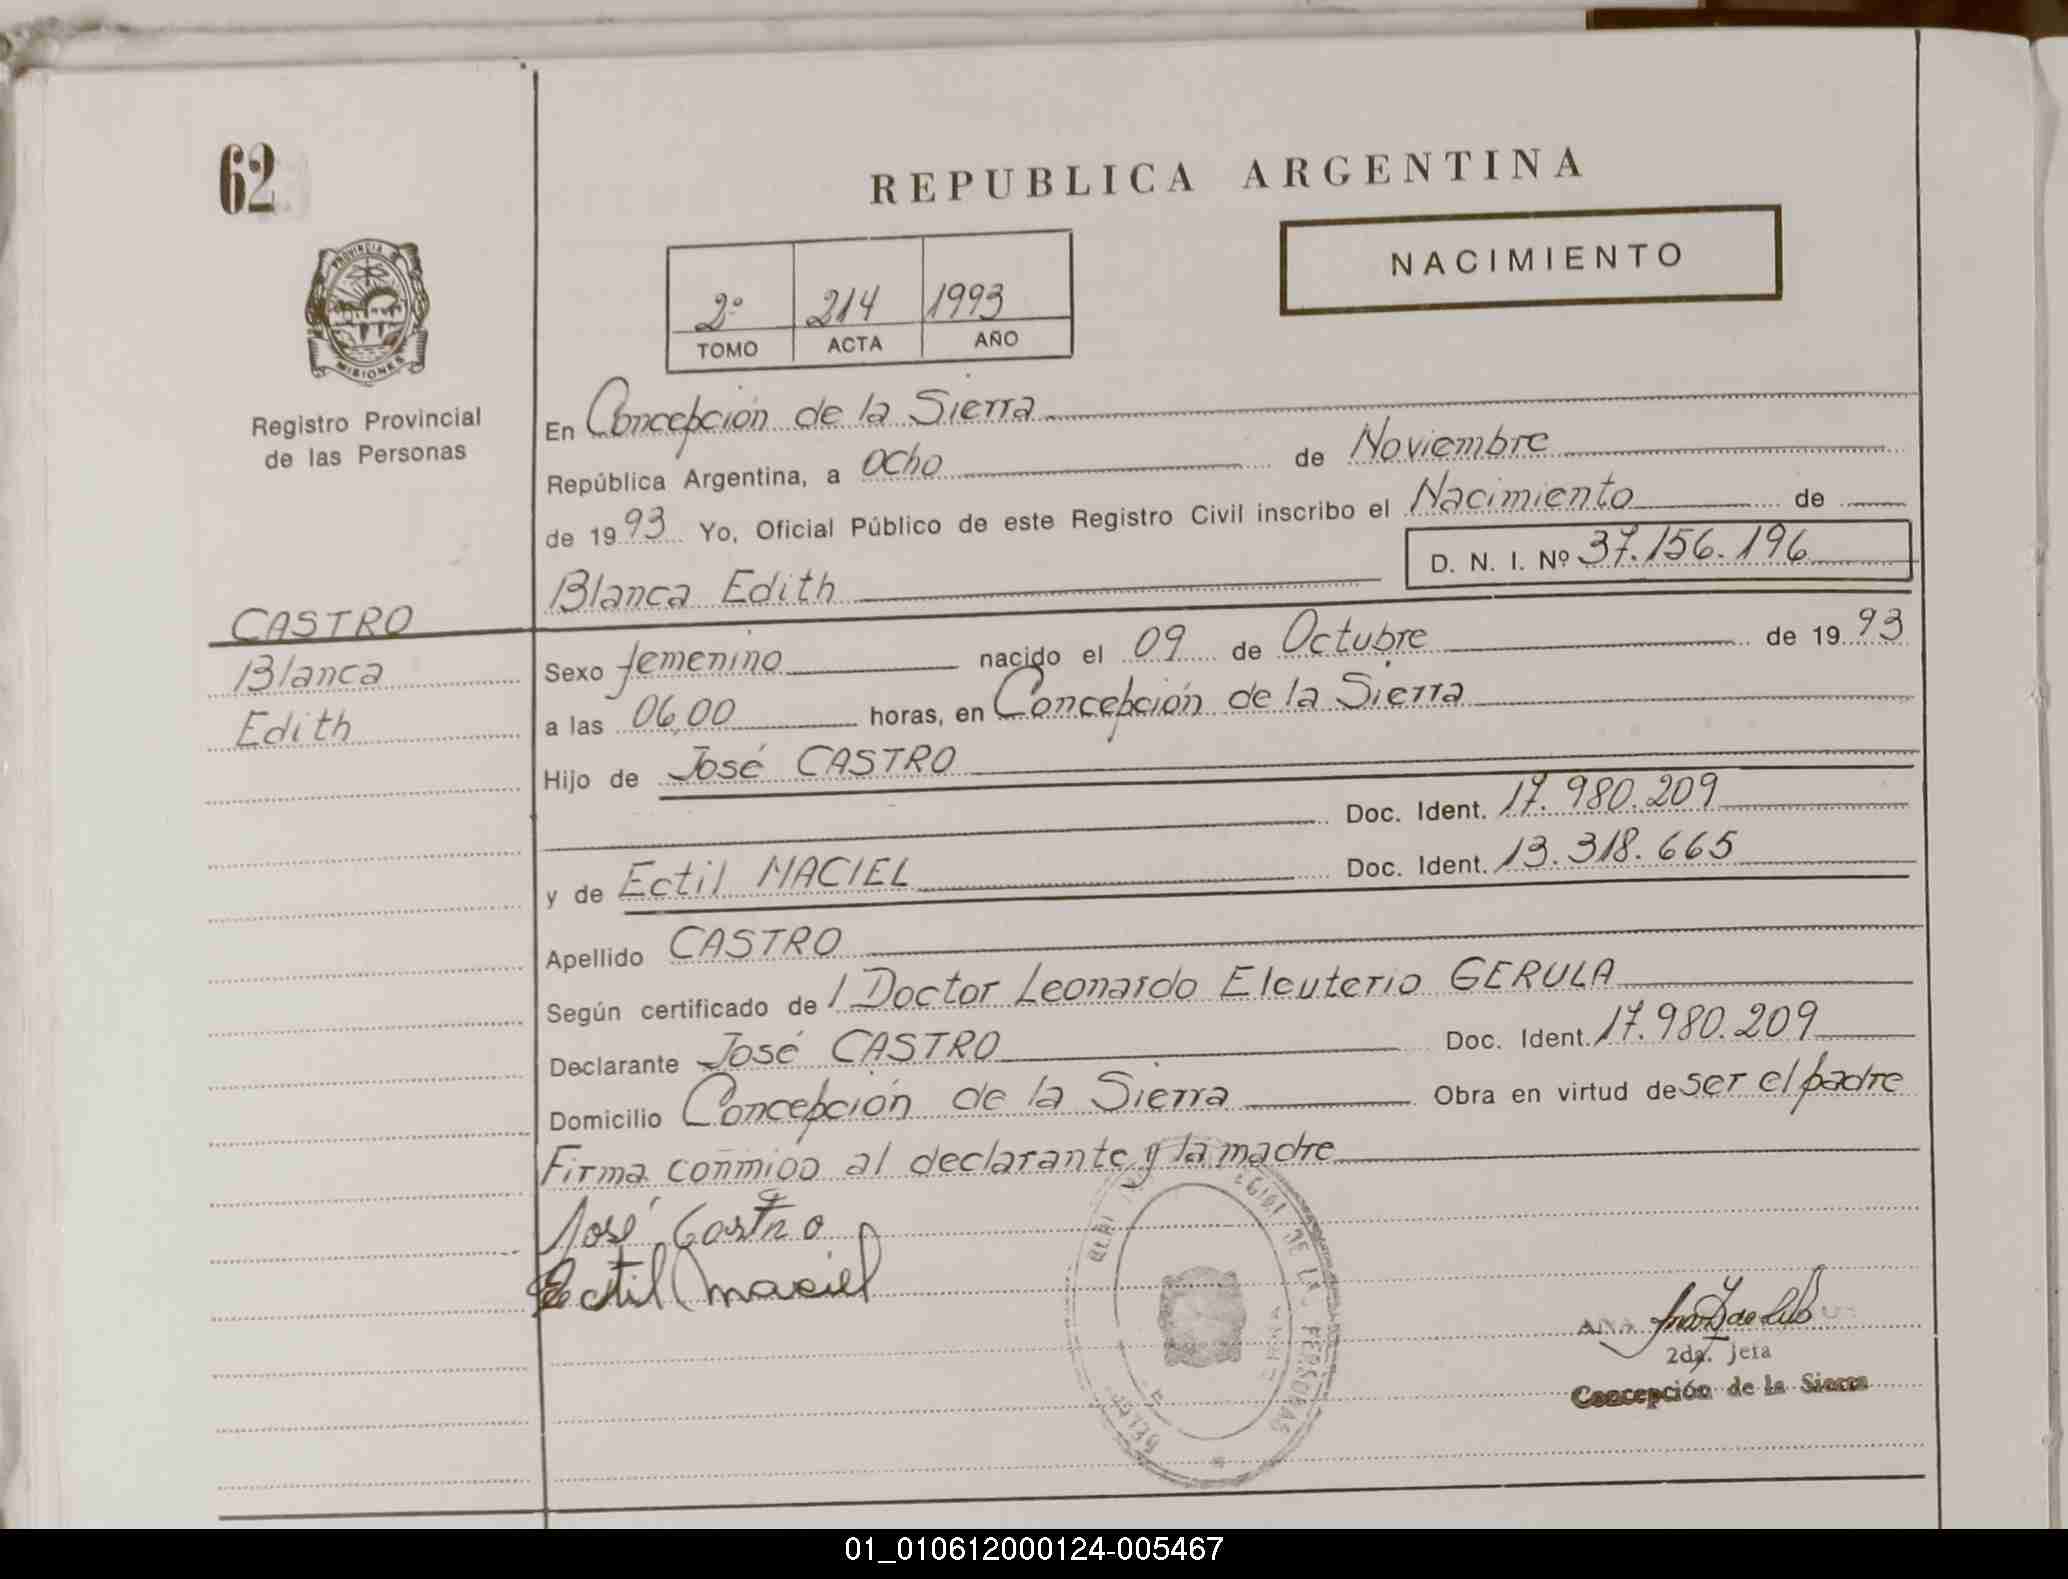 62
PROVINCIA DE
MISIONES
Registro Provincial
de las Personas
CASTRO
Blanca
Edith
REPUBLICA ARGENTINA
NACIMIENTO
2º 214 1993
TOMO ACTA AÑO
En Concepción de la Sierra
República Argentina, a ocho de Noviembre
de 1993 Yo, Oficial Público de este Registro Civil inscribo el Nacimiento de
Blanca Edith D. N. I. Nº 37.156.196
Sexo femenino nacido el 09 de Octubre de 1993
a las 06,00 horas, en Concepción de la Sierra
Hijo de José CASTRO
Doc. Ident. 17.980.209
y de Ectil MACIEL Doc. Ident. 13.318.665
Apellido CASTRO
Según certificado de l Doctor Leonardo Eleuterio GERULA
Declarante José CASTRO Doc. Ident. 17.980.209
Domicilio Concepción de la Sierra Obra en virtud de ser el padre
Firma conmigo al declarante y la madre
José Castro
Ectil Maciel
DE LAS PERSONAS
ANA
2da. Jefa
Concepción de la Sierra
01_010612000124-005467